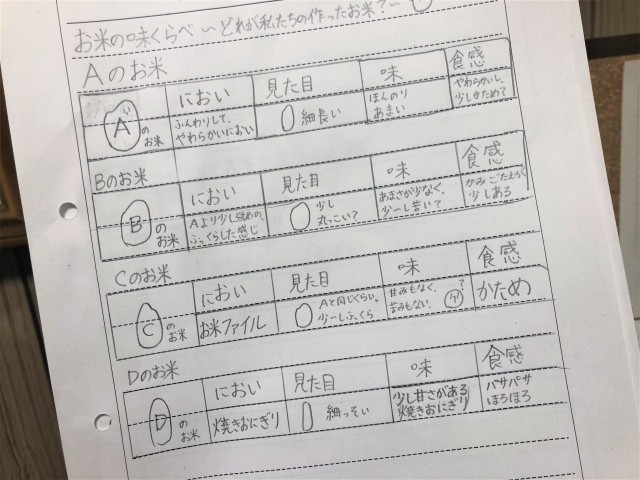 お米の味くらべ〜どれが私たちの作ったお米?〜
Aのお米
におい 見た目 味 食感
Aのお米 ふんわりして、やわらかいにおい 細長い ほんのりあまい やわらかいし、少しかため?
Bのお米
におい 見た目 味 食感
Bのお米 Aより少し強めの、ふっくらした感じ 少し丸っこい? あまさが少なく、少〜し苦い? かみごたえが少しある
Cのお米
におい 見た目 味 食感
Cのお米 お米ファイル Aと同じくらい。少〜しふっくら 甘みもなく、苦みもない。 かため
Dのお米
におい 見た目 味 食感
Dのお米 焼きおにぎり 細っそい 少し甘さがある焼きおにぎり パサパサほろほろ